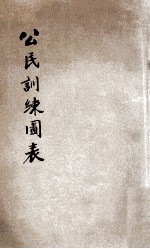 公民訓練圖表